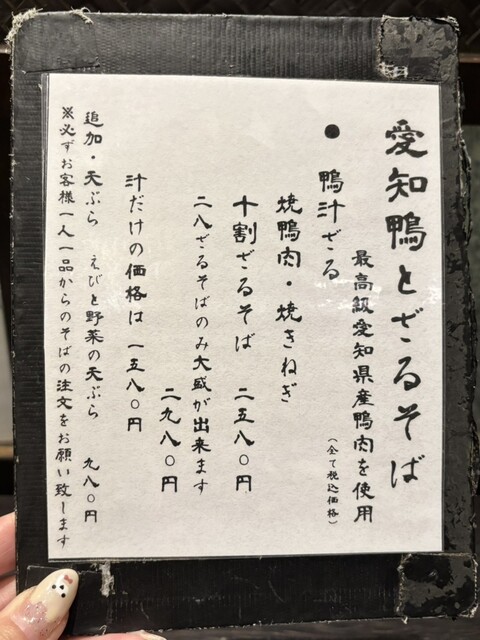 愛知鴨とざるそば
最高級愛知県産鴨肉を使用
(全て税込価格)
● 鴨汁ざる
焼鴨肉・焼きねぎ
十割ざるそば 二五八〇円
二八ざるそばのみ大盛が出来ます
二九八〇円
汁だけの価格は 一五八〇円
追加・天ぷら えびと野菜の天ぷら 九八〇円
※必ずお客様一人一品からのそばの注文をお願い致します